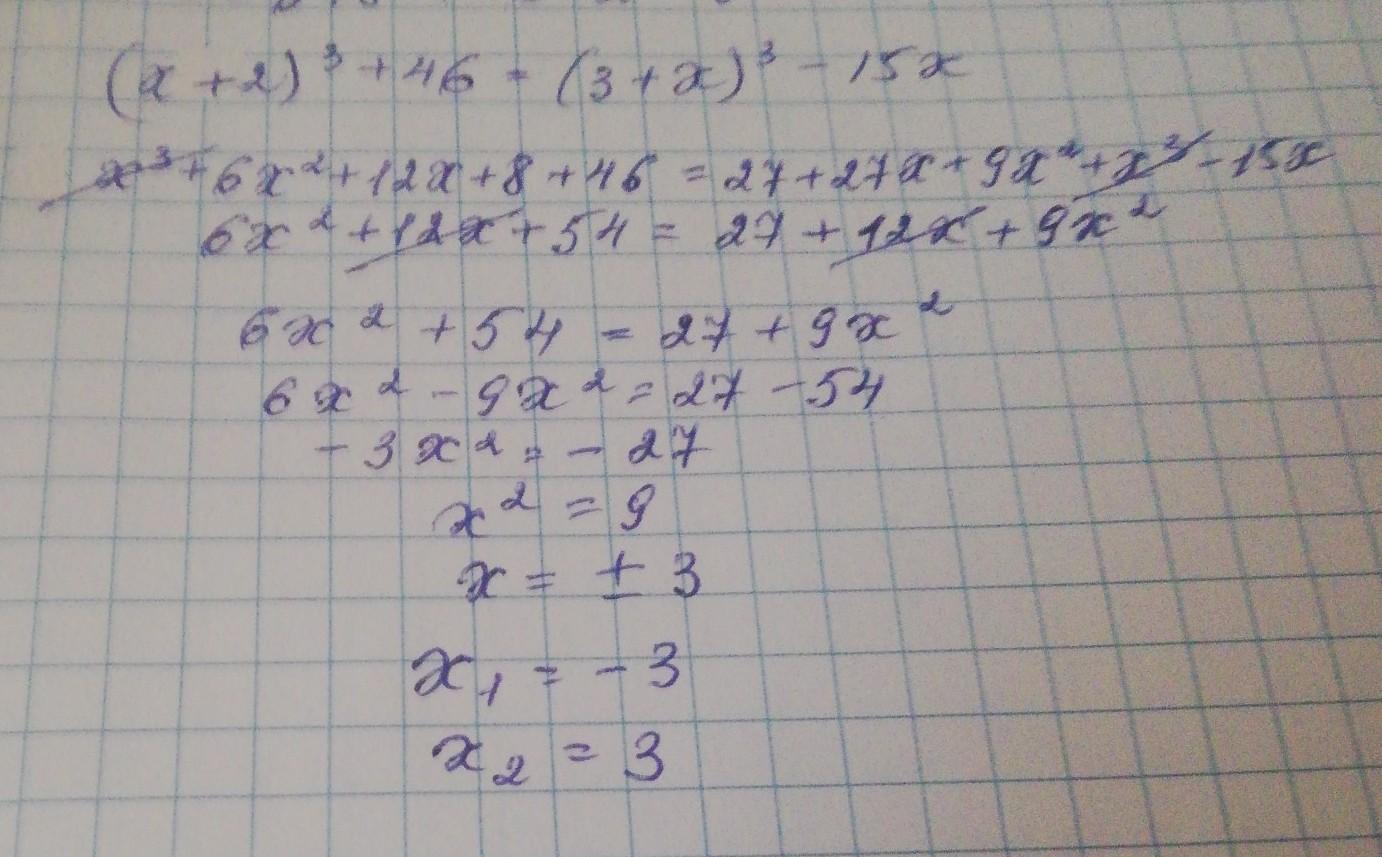 (x + 2)³ + 46 = (3 + x)³ - 15x
x³ + 6x² + 12x + 8 + 46 = 27 + 27x + 9x² + x³ - 15x
6x² + 12x + 54 = 27 + 12x + 9x²
6x² + 54 = 27 + 9x²
6x² - 9x² = 27 - 54
- 3x² = - 27
x² = 9
x = ± 3
x₁ = - 3
x₂ = 3